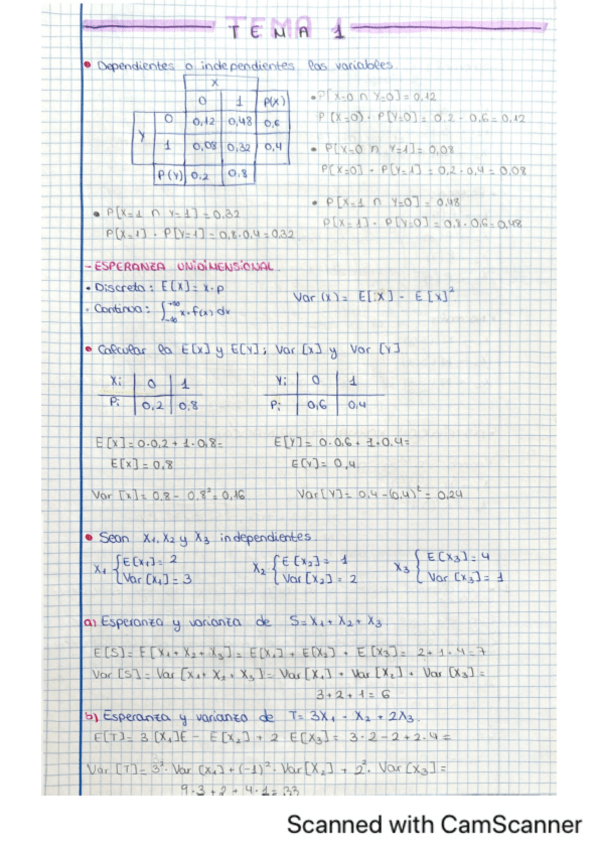 TEMA 1
• Dependientes o independientes las variables
X
0 1 P(X)
Y 0 0,12 0,48 0,6
1 0,08 0,32 0,4
P(Y) 0,2 0,8
• P[X=0 ∩ Y=0] = 0,12
P(X=0) · P[Y=0] = 0,2 · 0,6 = 0,12
• P[X=0 ∩ Y=1] = 0,08
P[X=0] · P[Y=1] = 0,2 · 0,4 = 0,08
• P[X=1 ∩ Y=0] = 0,48
P[X=1] · P[Y=0] = 0,8 · 0,6 = 0,48
• P[X=1 ∩ Y=1] = 0,32
P[X=1] · P[Y=1] = 0,8 · 0,4 = 0,32
- ESPERANZA UNIDIMENSIONAL
• Discreta: E[X] = x·p
• Continua: ∫_{-∞}^{+∞} x·f(x) dx
Var(x) = E[X] - E[X]²
• Calcular la E[X] y E[Y]; Var[X] y Var[Y]
Xi 0 1
Pi 0,2 0,8
Yi 0 1
Pi 0,6 0,4
E[X] = 0·0,2 + 1·0,8 =
E[X] = 0,8
E[Y] = 0·0,6 + 1·0,4 =
E[Y] = 0,4
Var[X] = 0,8 - 0,8² = 0,16
Var[Y] = 0,4 - (0,4)² = 0,24
• Sean X₁, X₂ y X₃ independientes
X₁ { E[X₁] = 2
Var[X₁] = 3
X₂ { E[X₂] = 1
Var[X₂] = 2
X₃ { E[X₃] = 4
Var[X₃] = 1
a) Esperanza y varianza de S = X₁ + X₂ + X₃
E[S] = E[X₁ + X₂ + X₃] = E[X₁] + E[X₂] + E[X₃] = 2 + 1 + 4 = 7
Var[S] = Var[X₁ + X₂ + X₃] = Var[X₁] + Var[X₂] + Var[X₃] =
3 + 2 + 1 = 6
b) Esperanza y varianza de T = 3X₁ - X₂ + 2X₃.
E[T] = 3[X₁]E - E[X₂] + 2 E[X₃] = 3·2 - 2 + 2·4 =
Var[T] = 3²·Var[X₁] + (-1)²·Var[X₂] + 2²·Var[X₃] =
9·3 + 2 + 4·1 = 33
Scanned with CamScanner